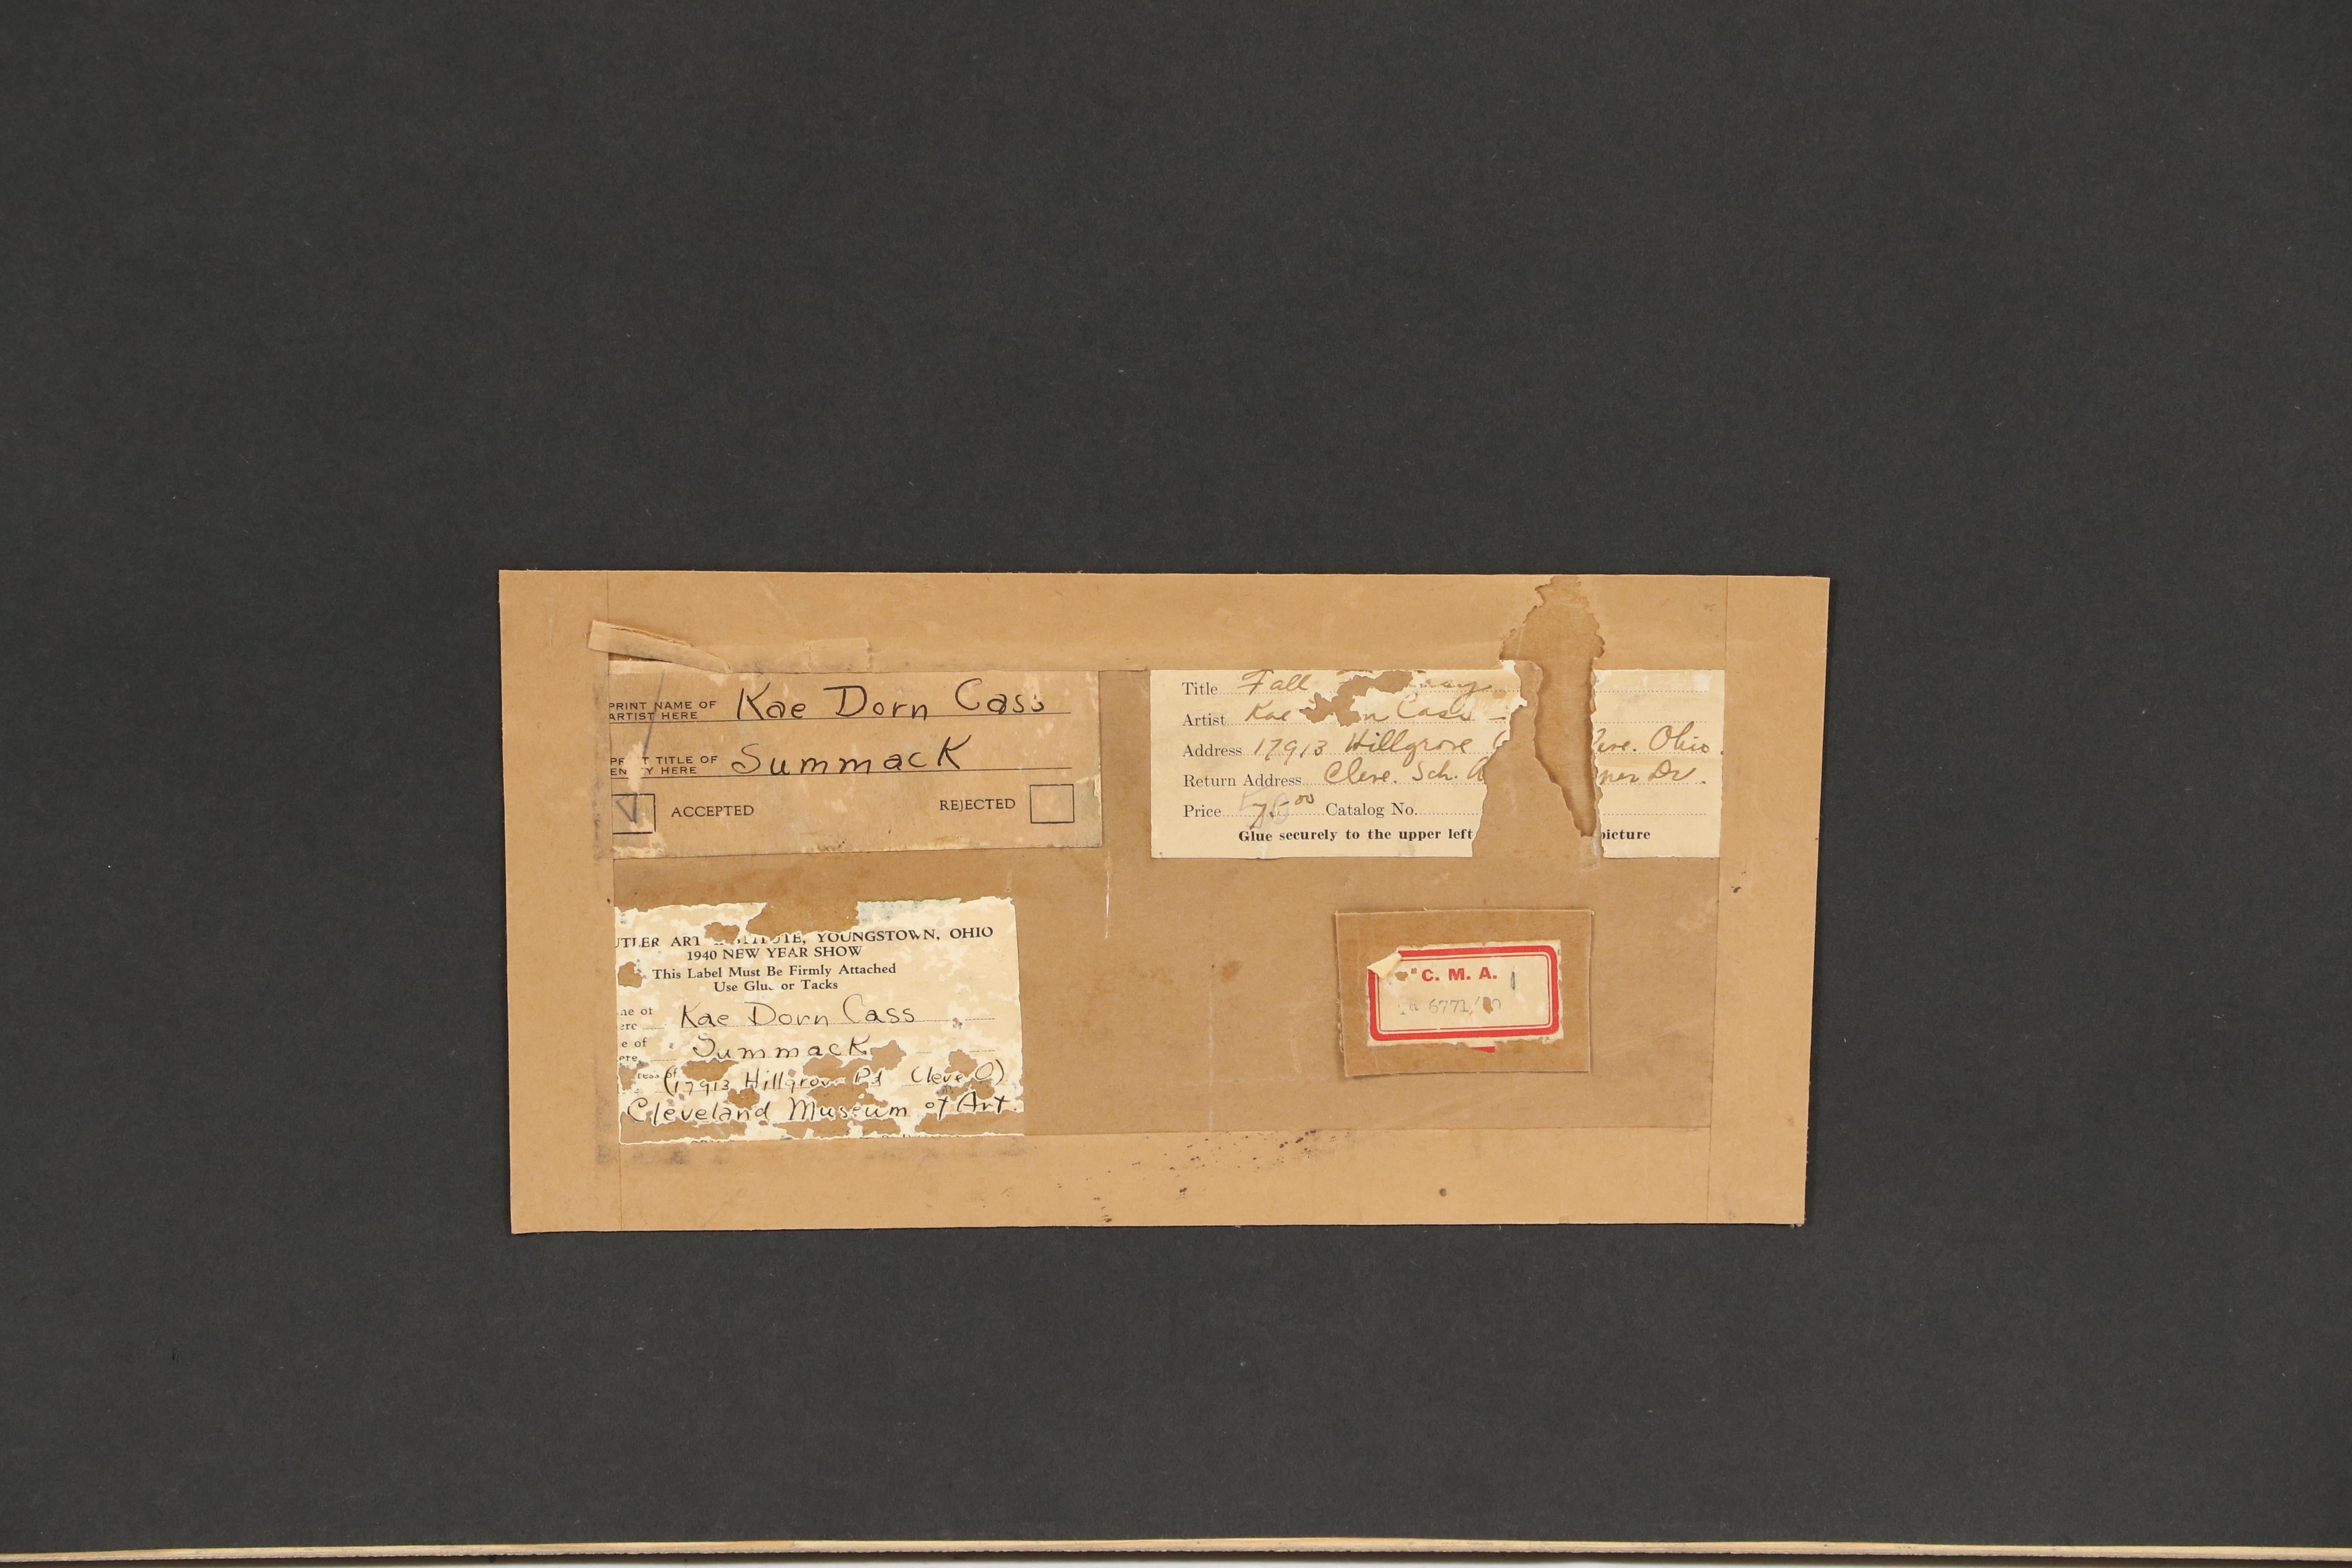 PRINT NAME OF
ARTIST HERE Kae Dorn Cass
TITLE OF
HERE Summack
ACCEPTED REJECTED
Title Fall
Artist Kae Cass
Address 17913 Hillgrove Ohio.
Return Address Cleve. Sch. Dr.
Price 75.00 Catalog No.
Glue securely to the upper left picture
UTLER ART YOUNGSTOWN, OHIO
1940 NEW YEAR SHOW
This Label Must Be Firmly Attached
Use Glue or Tacks
Kae Dorn Cass
Summack
(17913 Hillgrove Rd Cleve O)
Cleveland Museum of Art.
C. M. A.
6771/